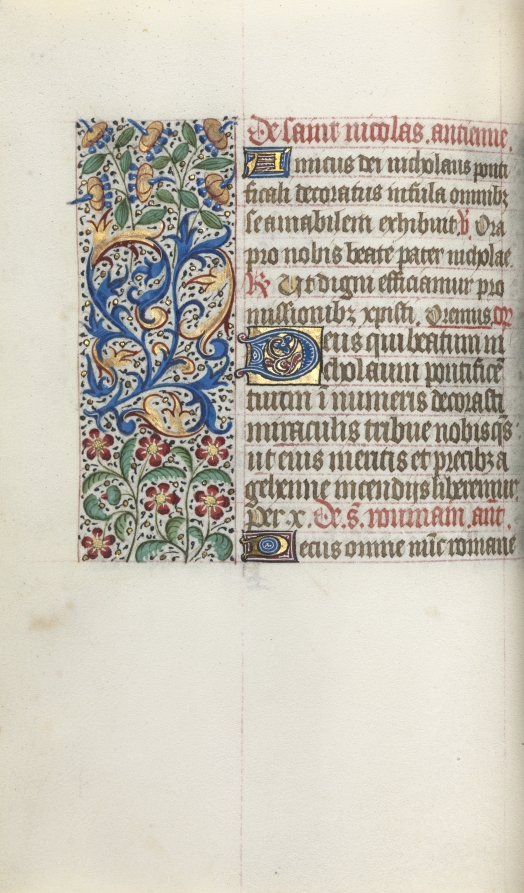 De saint nicolas. antienne.
Amicus dei nicholaus ponti
ficali decoratus infula omnibz
se amabilem exhibuit. v̄ Ora
pro nobis beate pater nicholae.
R̄ Ut digni efficiamur pro
missionibz xpisti. Oremus. or̄
Deus qui beatum ni
cholaum pontificē
tuum i numeris decorasti
miraculis tribue nobis q̄s
ut eius meritis et precibz a
gehenne incendijs liberemur.
Per. x. De s̄. roumain. ant̄.
Decus omne nūc romane